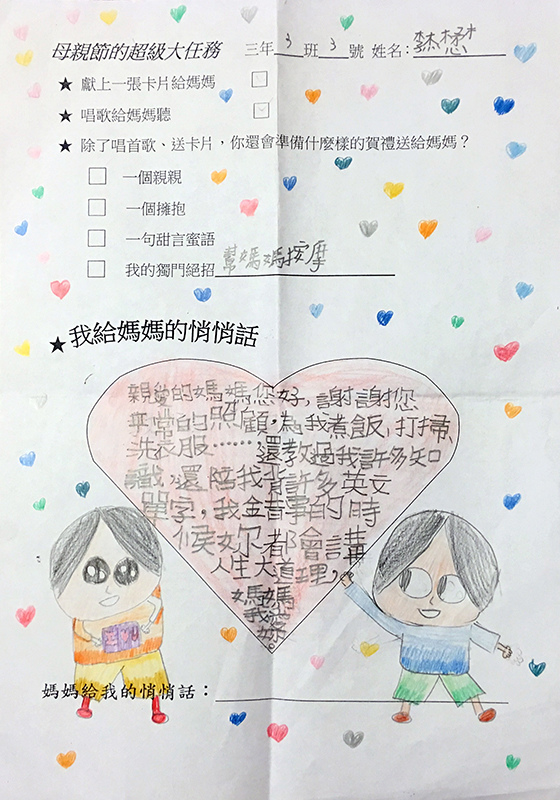 母親節的超級大任務 三年 3 班 3 號 姓名：
★ 獻上一張卡片給媽媽 □
★ 唱歌給媽媽聽 □
★ 除了唱首歌、送卡片，你還會準備什麼樣的賀禮送給媽媽？
□ 一個親親
□ 一個擁抱
□ 一句甜言蜜語
□ 我的獨門絕招幫媽媽按摩
★我給媽媽的悄悄話
親愛的媽媽您好，謝謝您
平常的照顧，為我煮飯,打掃、
洗衣服……，還教過我許多知
識，還陪我背許多英文
單字，我金昔事的時
候妳都會講
人生大道理，
媽媽
我愛
妳。
媽媽給我的悄悄話：